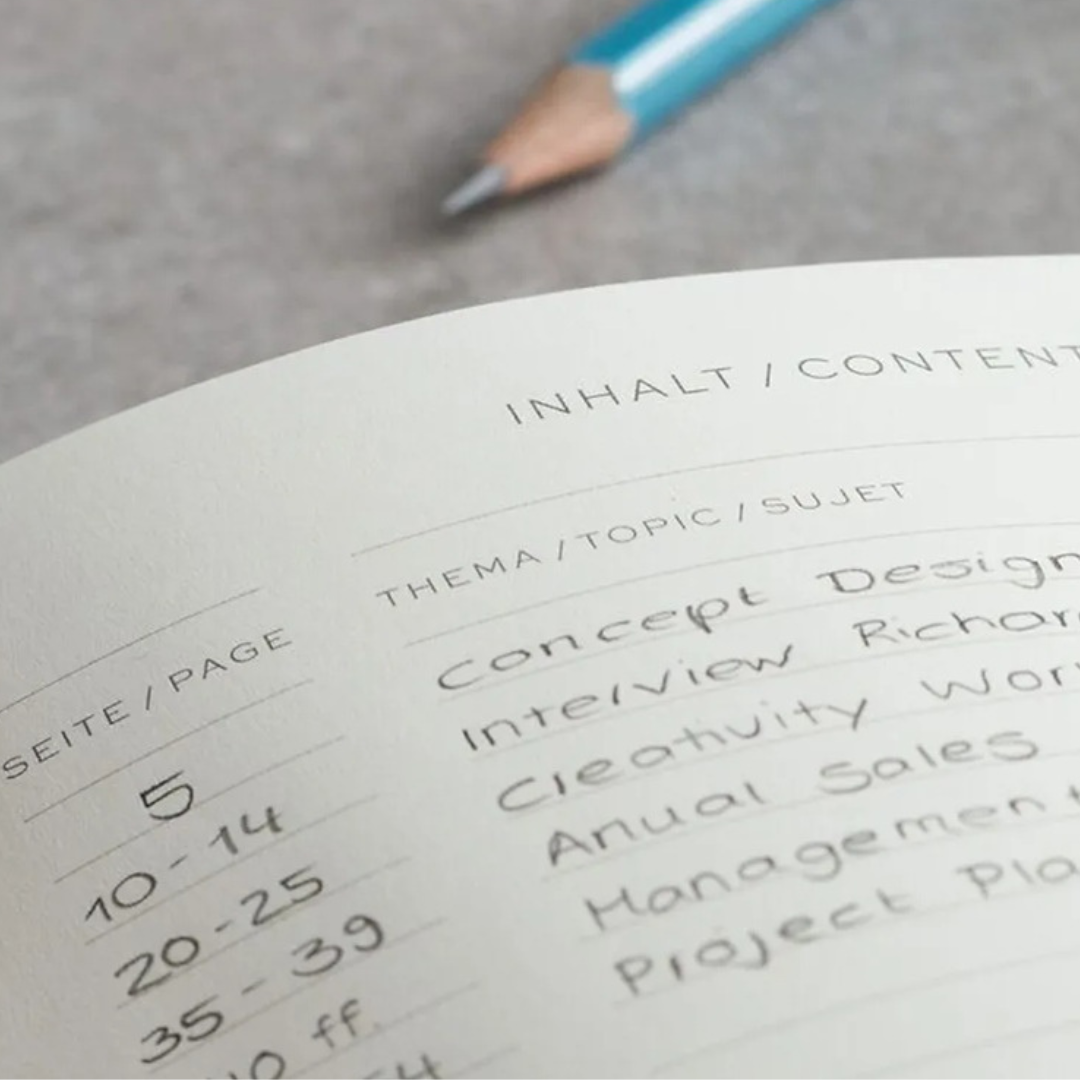 INHALT / CONTENT
SEITE / PAGE THEMA / TOPIC / SUJET
5 Concept Design
10-14 Interview Richar
20-25 Creativity Wor
35-39 Anual Sales
ff. Management
Project Pla